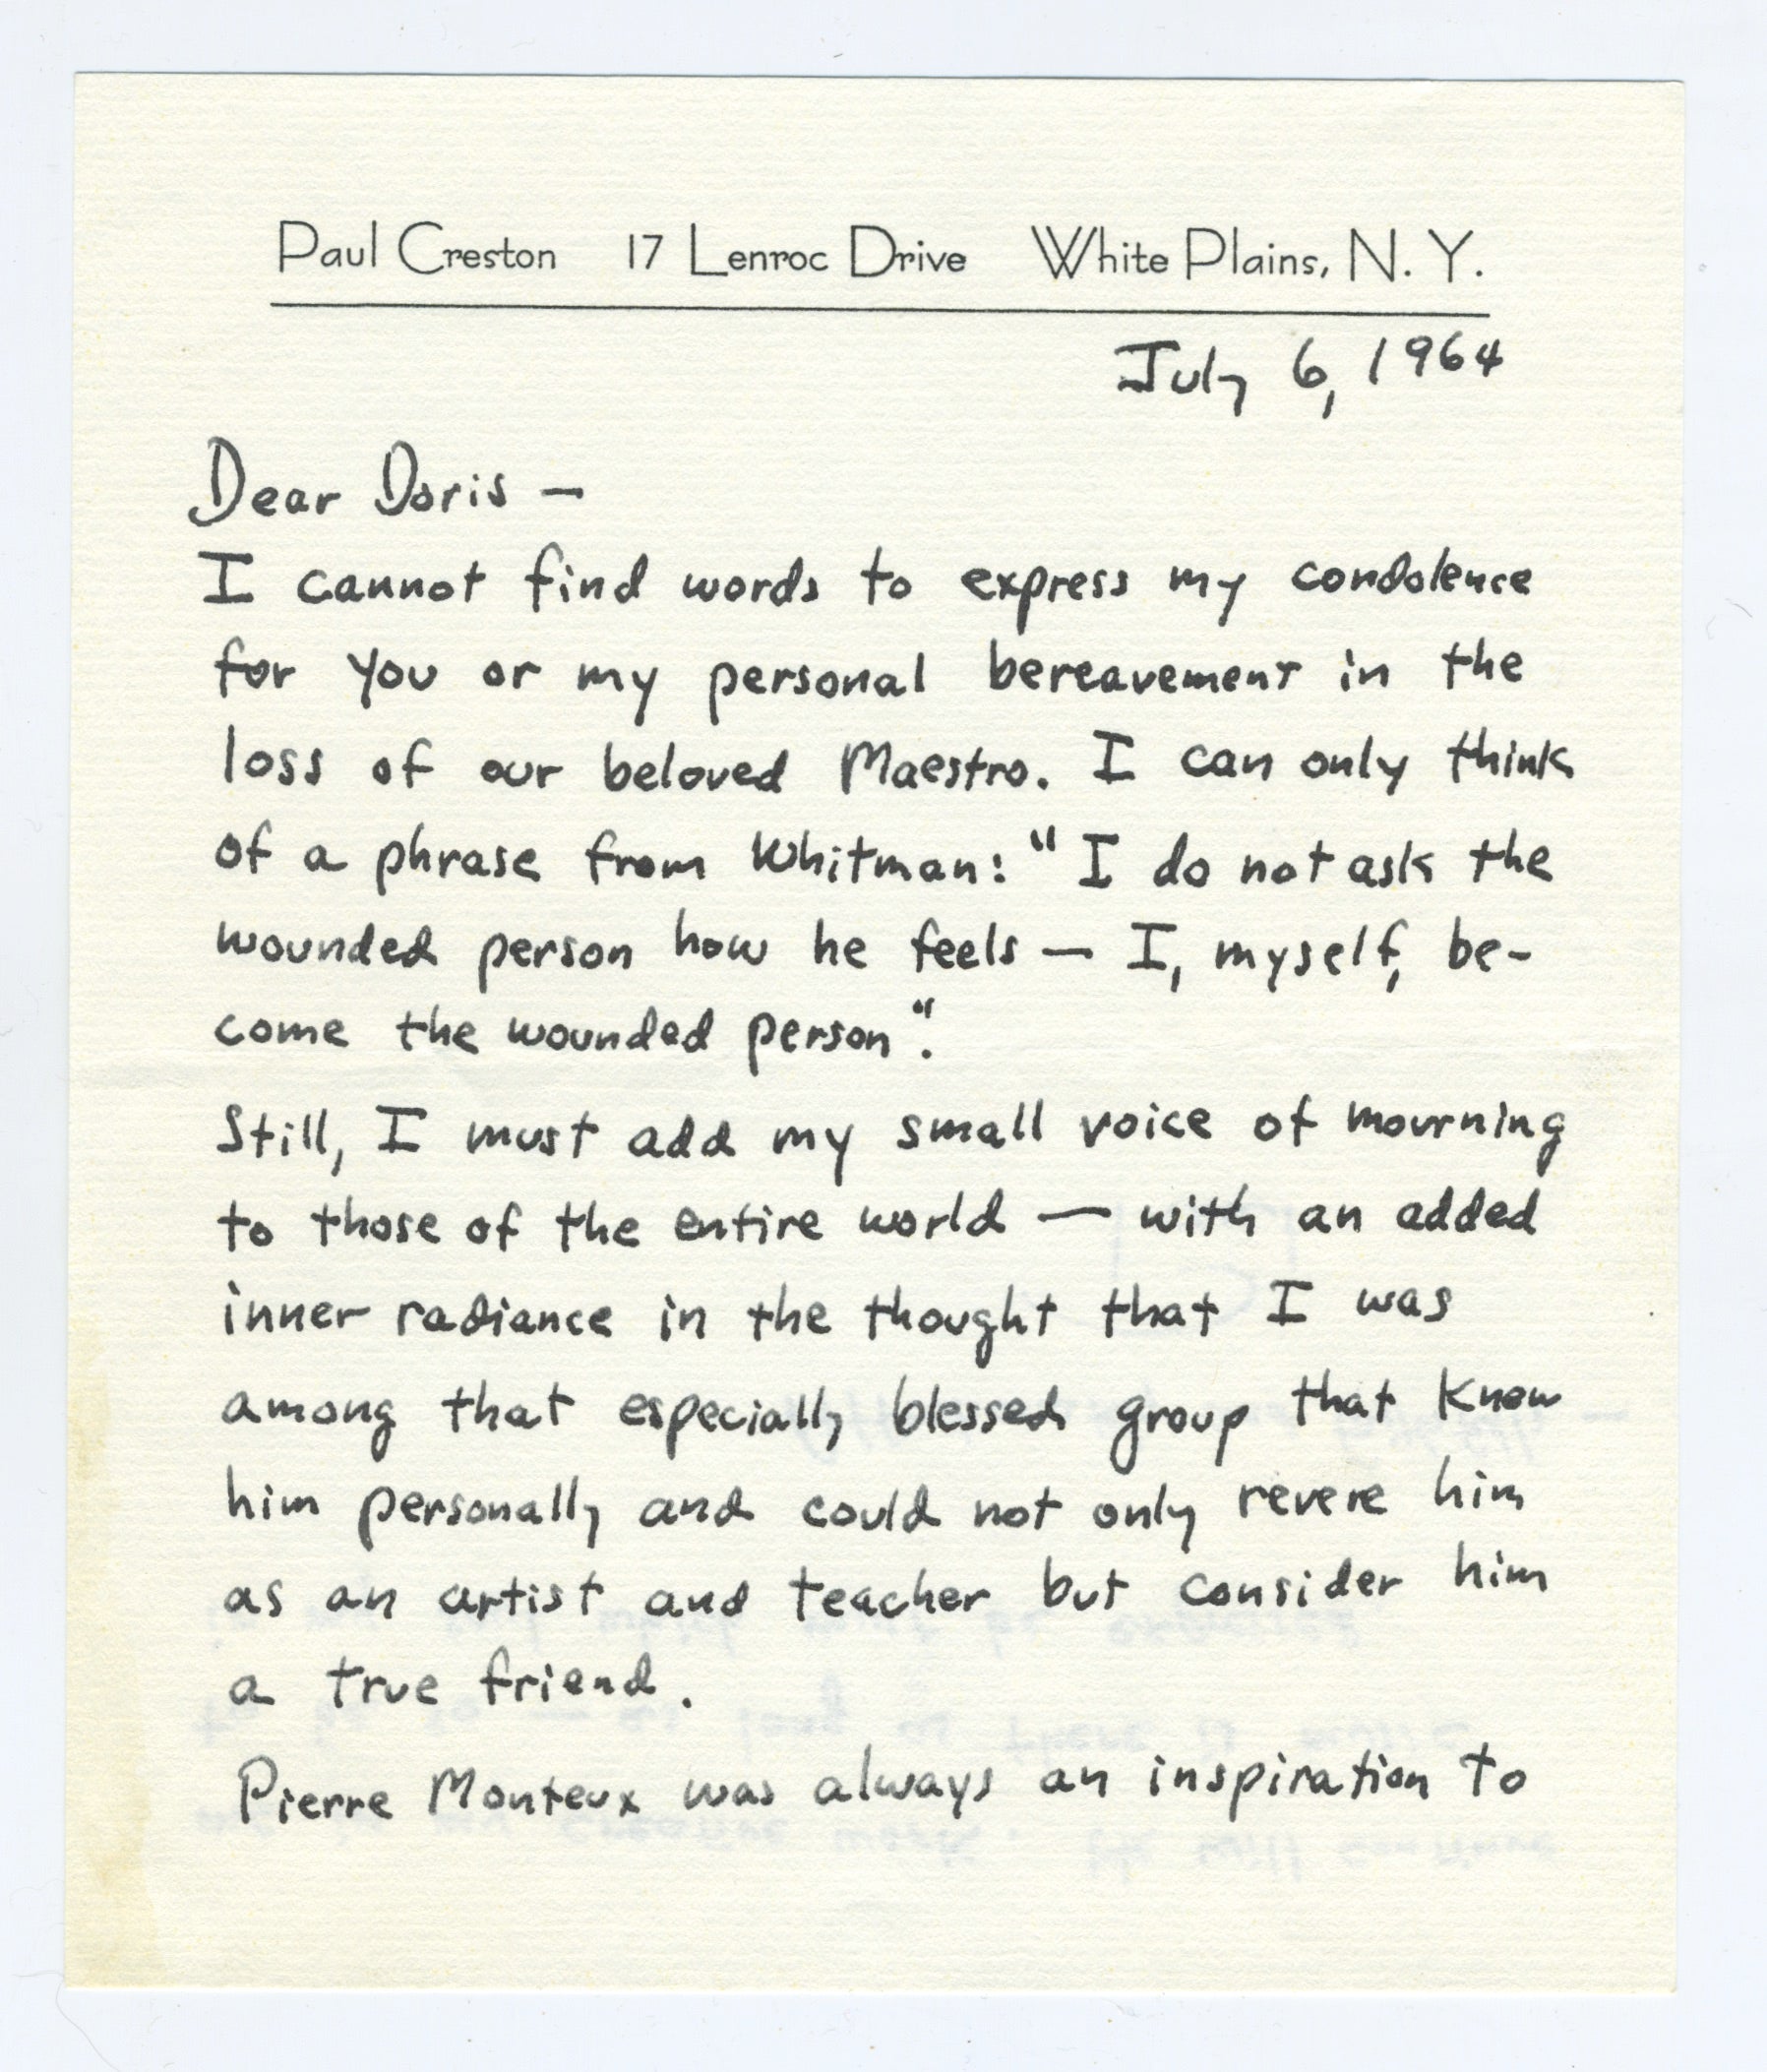 Paul Creston 17 Lenroc Drive White Plains, N. Y.
July 6, 1964
Dear Doris —
I cannot find words to express my condolence
for you or my personal bereavement in the
loss of our beloved Maestro. I can only think
of a phrase from Whitman: "I do not ask the
wounded person how he feels — I, myself, be-
come the wounded person".
Still, I must add my small voice of mourning
to those of the entire world — with an added
inner radiance in the thought that I was
among that especially blessed group that knew
him personally and could not only revere him
as an artist and teacher but consider him
a true friend.
Pierre Monteux was always an inspiration to